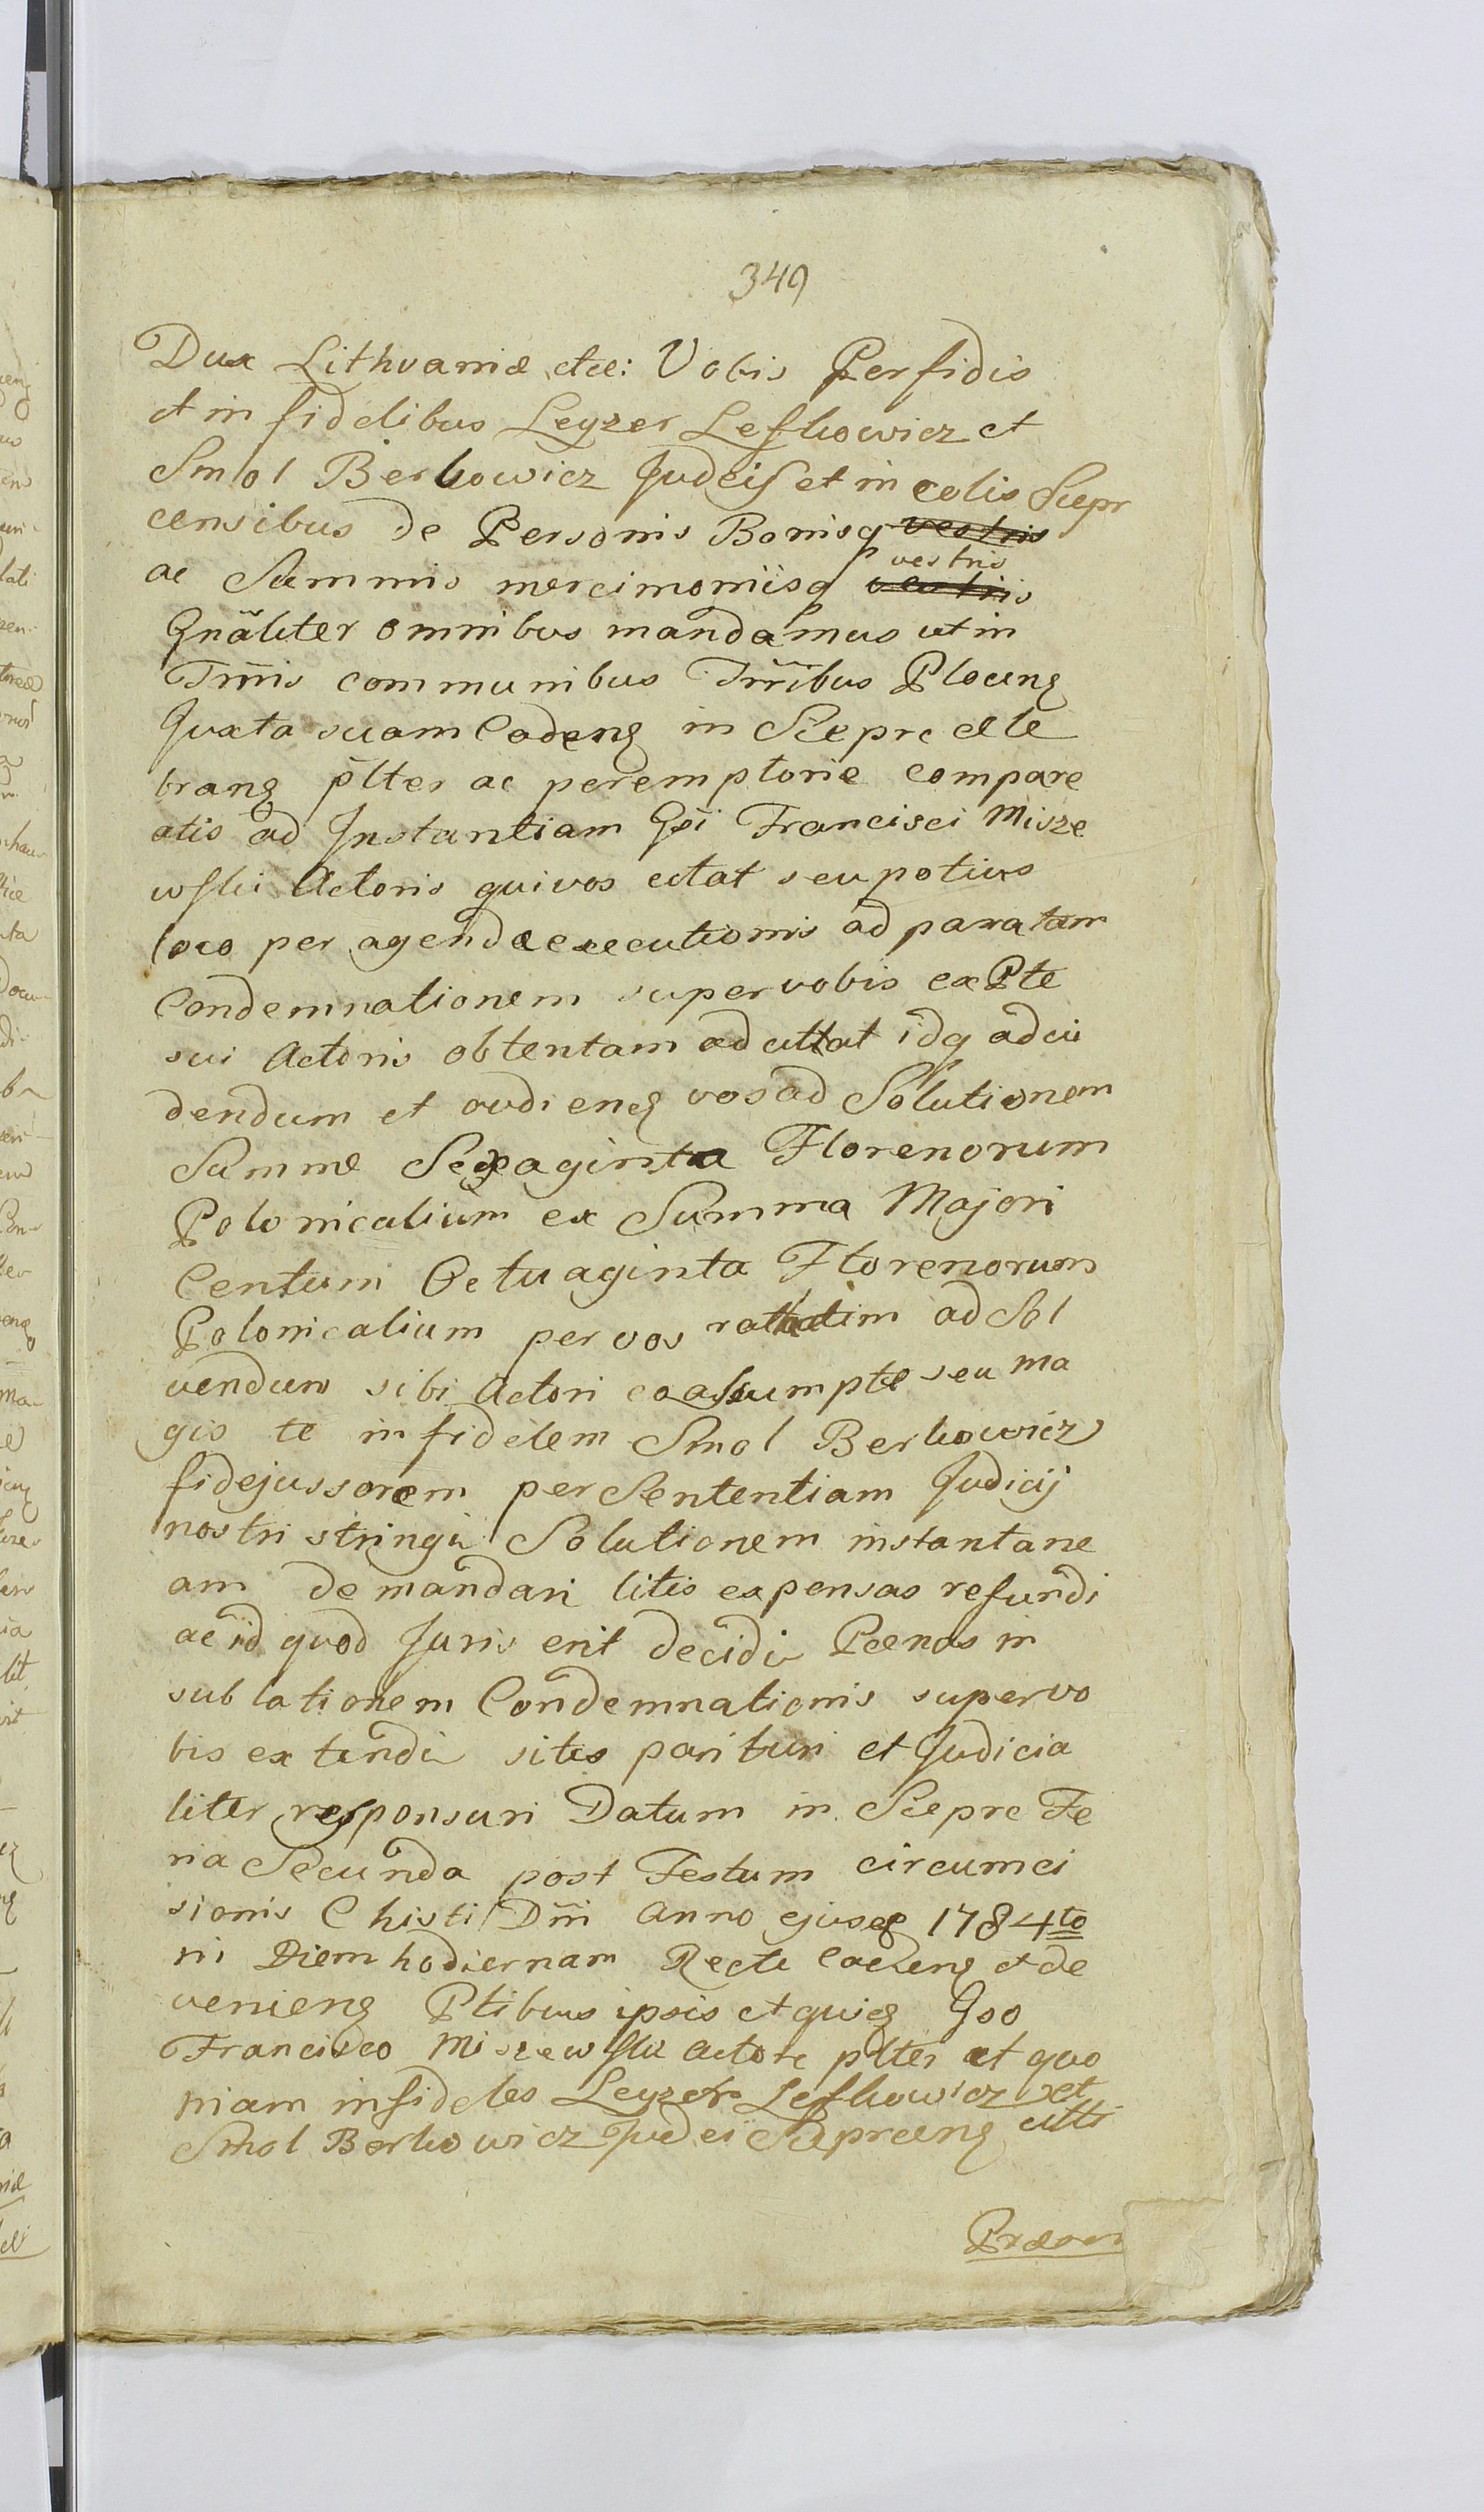 349
Dux Lithvaniæ etce: Vobis Perfidis
et infidelibus Leyzer Lefkowicz et
Smol Berkowicz Judeis et incolis Siepr
censibus de Personis Bonisq vestris
ac Summis mercimoniisq vestris
Gnãliter omnibus mandamus ut in
Tmis communibus Trribus Plocen
Juxta suam Cadeng in Sieprc cele
brang plter ac peremptorie compare
atis ad Instantiam Gsi Francisci Misze
wski Actoris qui vos citat seu potius
loco peragendæ executionis ad paratam
Condemnationem super vobis ex Pte
sui Actoris obtentam adcittat idq advi
dendum et audieng vos ad Solutionem
Summe Sexaginta Florenorum
Polonicalium ex Summa Majori
Centum Octuaginta Florenorum
Polonicalium per vos ratatim ad Sol
vendum sibi Actori coassumpte seu ma
gis te infidelem Smol Berkowicz
fidejussorem per Sententiam Judicij
nostri stringi Solutionem instantane
am demandari litis expensas refundi
ac id quod Juris erit decidi Pænas in
sublationem Condemnationis super vo
bis extendi sitis parituri et Judicia
liter responsuri Datum in Sieprc Fe
ria Secunda post Festum circumci
sionis Christi Dni Anno ejusq 1784to
in Diem hodiernam Recte Cadeng et de
venieng Ptibus ipsis et quiq Gso
Francisco Miszewski Actore plter et quo
niam infideles Leyzer Lefkowicz et
Smol Berkowicz Judei Sieprceng citti